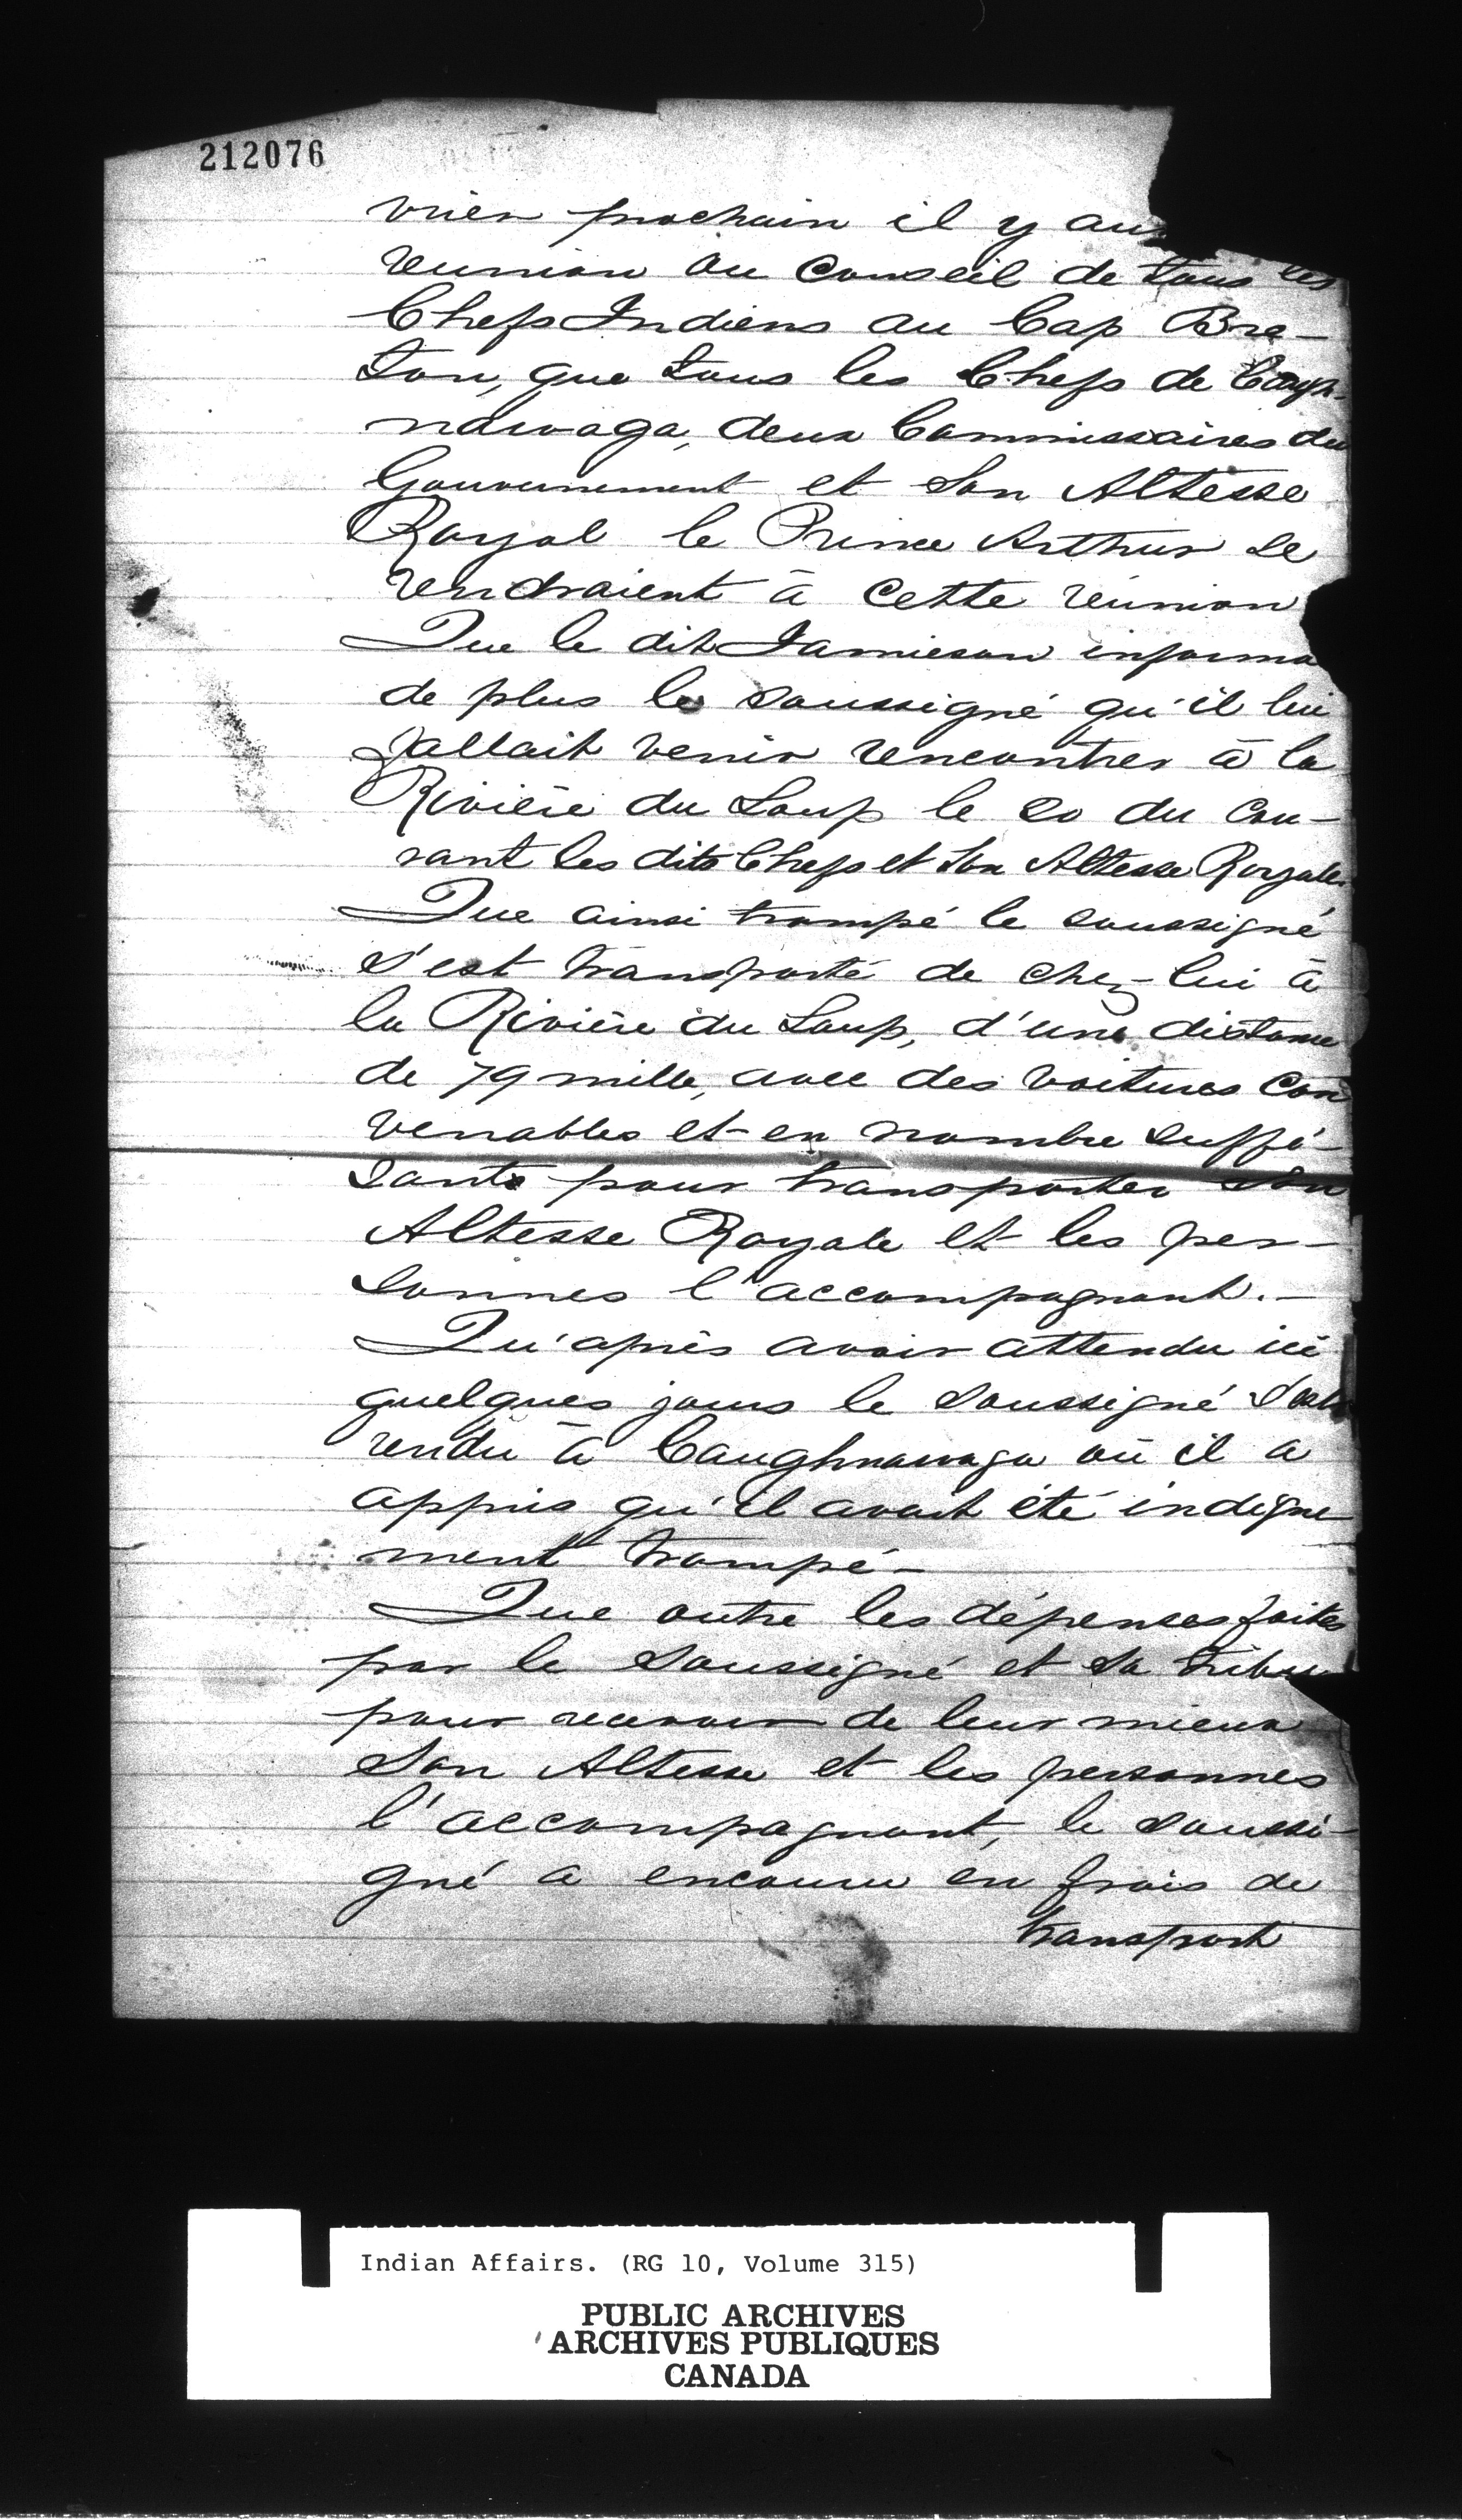 212076
vrier prochain il y au
reunion ou Conseil de tous les
Chefs Indiens au Cap Bre-
ton, que tous les Chefs de Caugh-
nawaga, deux Commissaires du
Gouvernement et Son Altesse
Royal le Prince Arthur se
rendraient à cette réunion
Que le dit Jamieson informa
de plus le soussigné qu'il lui
fallait venir rencontrer à la
Rivière du Loup le 20 du Cou-
rant les dits Chefs et Son Altesse Royale.
Que ainsi trompé le soussigné
s'est transporté de chez lui à
la Rivière du Loup, d'une distance
de 79 mille, avec des voitures Con
venables et en nombre suffi-
sante pour transporter Son
Altesse Royale et les per-
sonnes l'accompagnant.-
Qu'après avoir attendu ici
quelques jours le soussigné s'est
rendu à Caughnawaga où il a
appris qu'il avait été indigne
ment trompé-
Que outre les dépenses faites
par le soussigné et sa tribu
pour recevoir de leur mieux
Son Altesse et les personnes
l'accompagnant, le soussi-
gné a encouru en frais de
transport
Indian Affairs. (RG 10, Volume 315)
PUBLIC ARCHIVES
ARCHIVES PUBLIQUES
CANADA